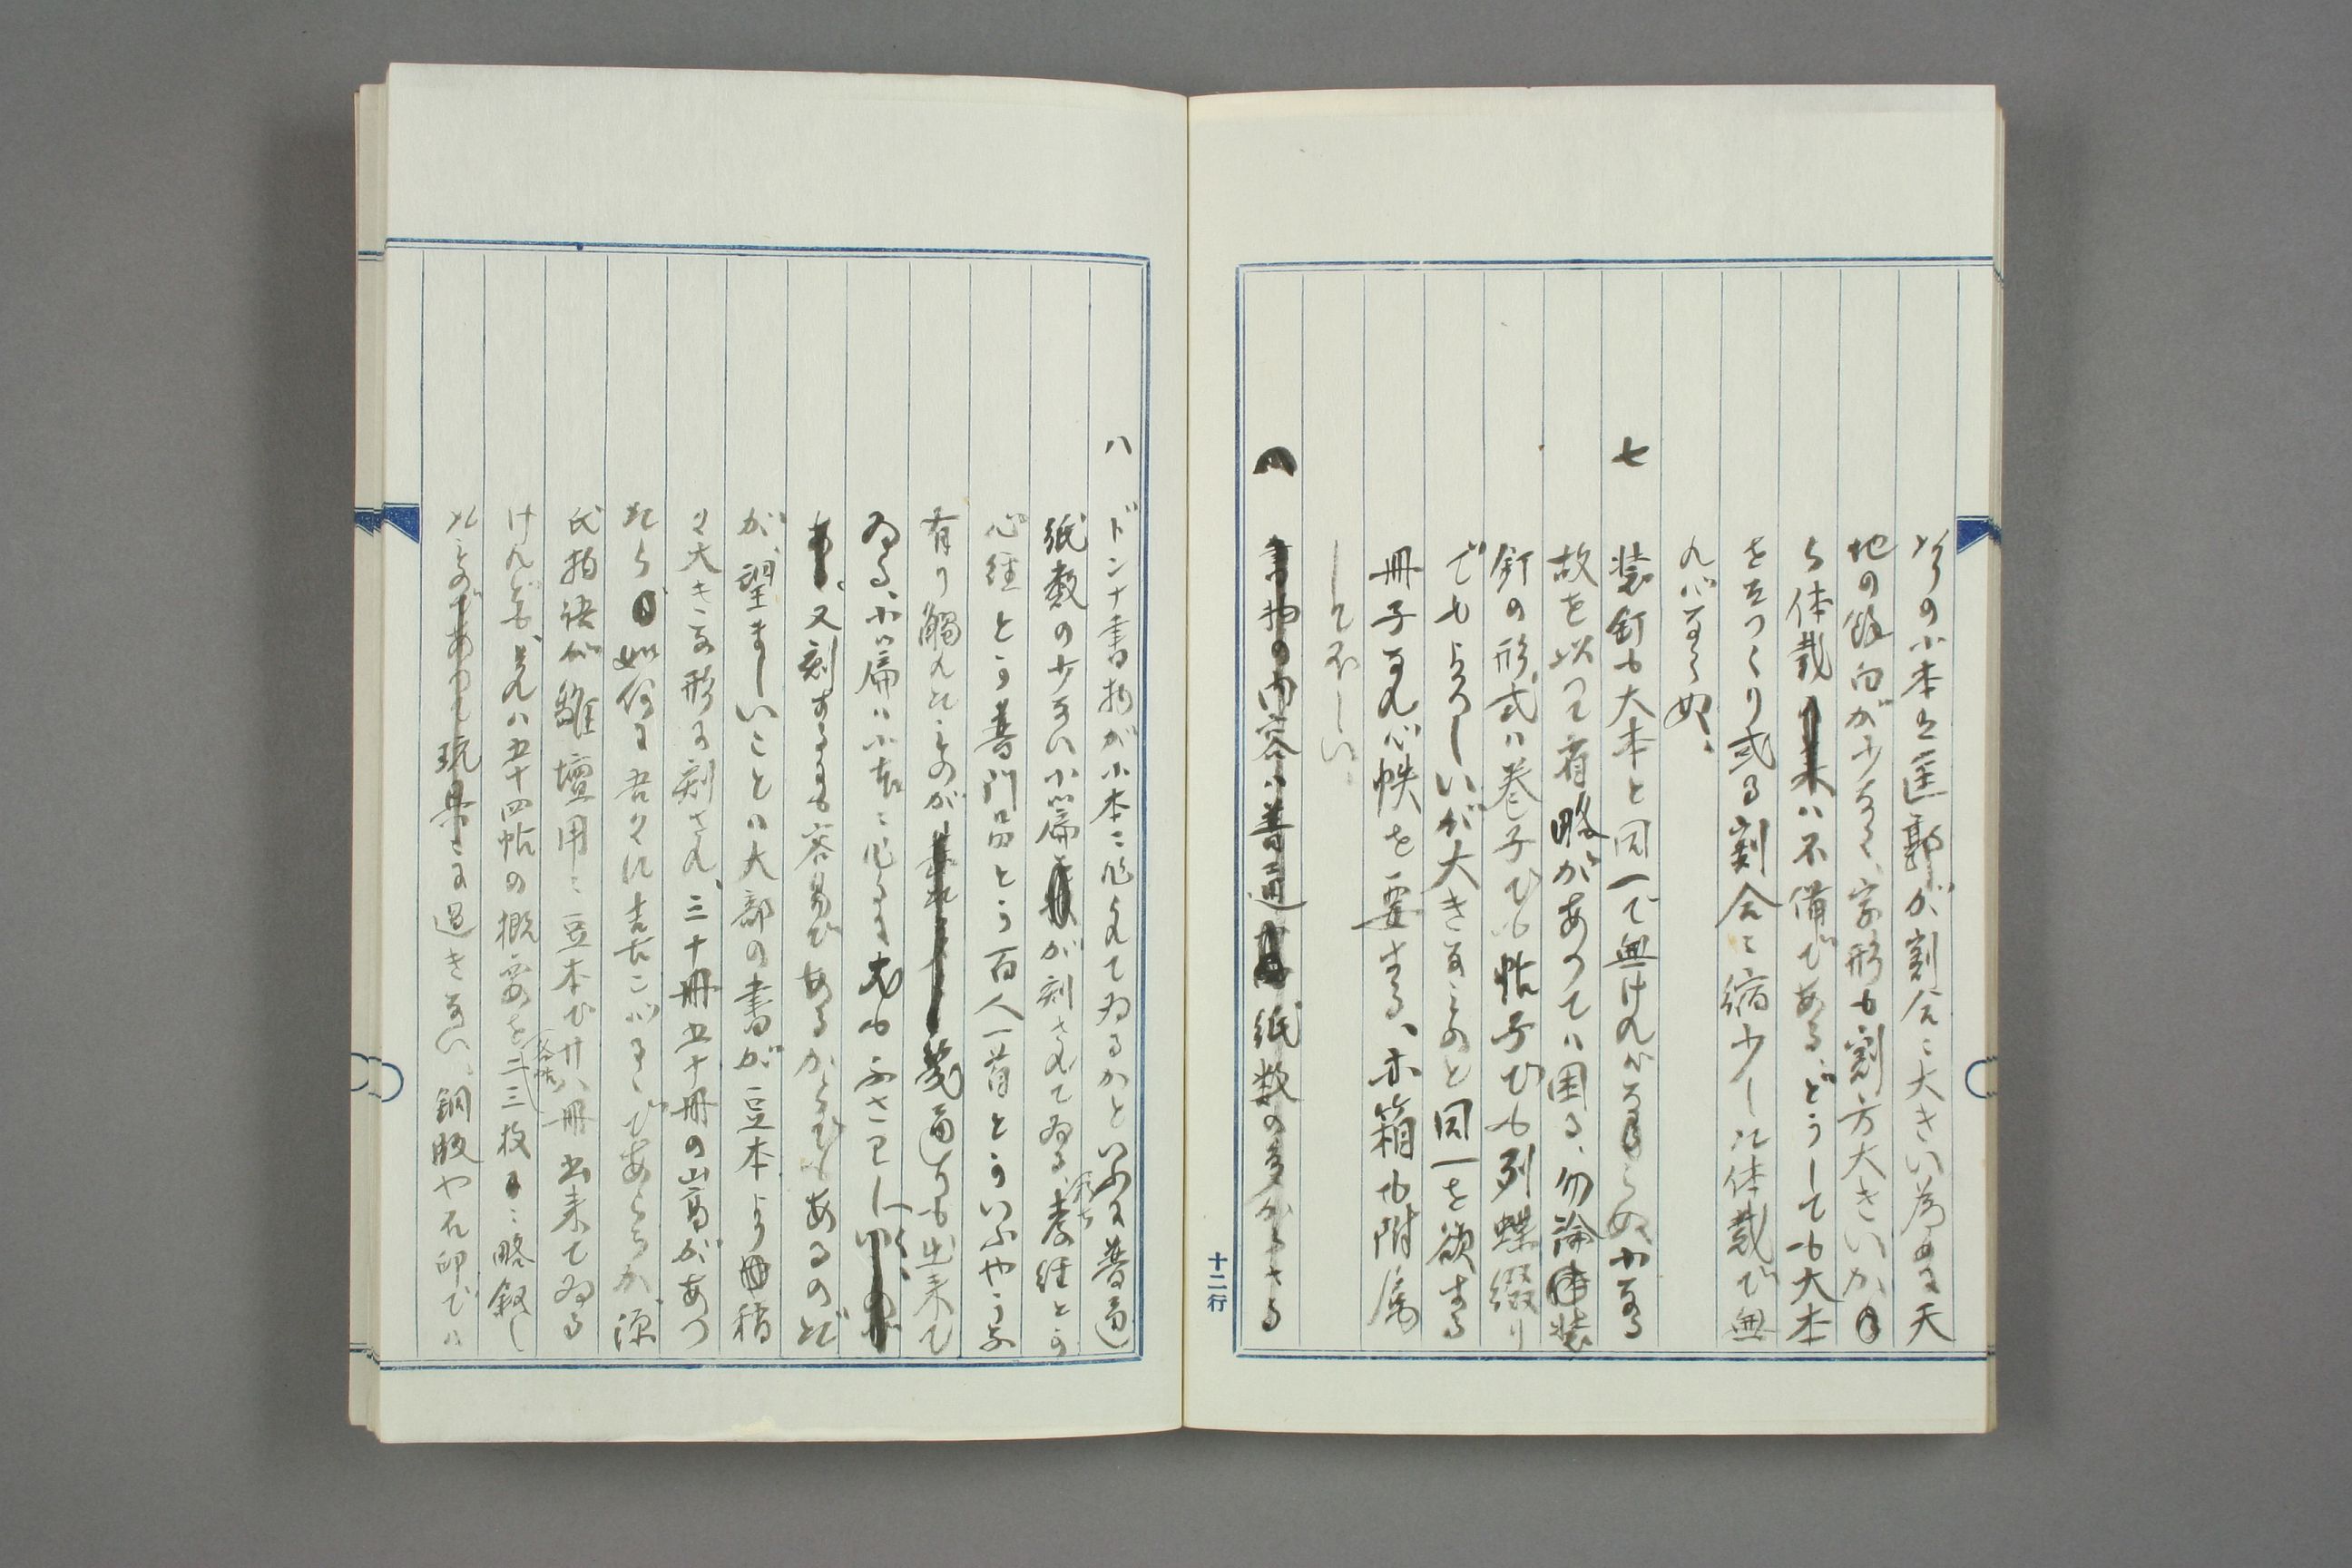 の小本は匡郭が割合に大きい為めに天
地の餘白が少なく、字形も割方大きいか
ら体裁は不備である、どうしても大本
をそつくり或る割合に縮少した体裁で無
ればならぬ、
七 装釘も大本と同一で無ければならぬ、小なる
故を以つて省略があつては困る、勿論装
釘の形式は巻子でも帖子でも列蝶綴り
でもよろしいが大きなものと同一を欲する
冊子なれば帙を要する、亦箱も附属
して欲しい、
八 書物の内容は普通 紙数の多からざる
十二行
八 ドンナ書物が小本に作られてゐるかといふに普通
紙数の少ない小篇が刻されてゐる、孝経とか
心経とか普門品とか百人一首とかいふやうな
有り觸れたものが 普通にも出来て
ゐる、小篇は小本に作るに尤もふさわしく
又刻するにも容易であるからでもあるのだ
が、望ましいことは大部の書が豆本より稍
々大きな形に刻され、三十冊五十冊の山高があつ
たら 如何に吾々は喜こばしいであらうか、源
氏物語が雛壇用に豆本で廿八冊出来てゐる
けれども、それは五十四帖の概要を二三枚に略叙し
たもので 玩具に過きない、銅版や石印では